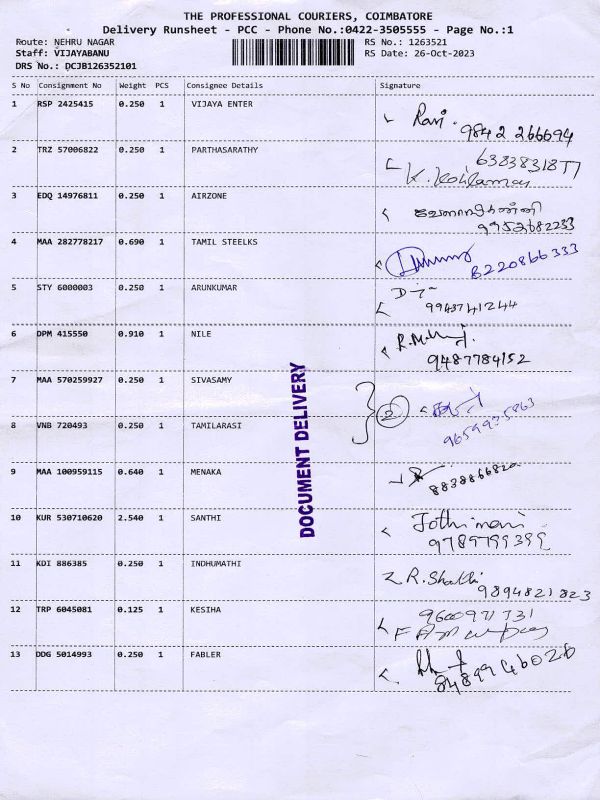 THE PROFESSIONAL COURIERS, COIMBATORE
Delivery Runsheet - PCC - Phone No.:0422-3505555 - Page No.:1
Route: NEHRU NAGAR
RS No.: 1263521
Staff: VIJAYABANU
RS Date: 26-Oct-2023
DRS No.: DCJB126352101
S No Consignment No Weight PCS Consignee Details Signature
1 RSP 2425415 0.250 1 VIJAYA ENTER
Ravi. 9842 266694
2 TRZ 57006822 0.250 1 PARTHASARATHY
3 EDQ 14976811 0.250 1 AIRZONE
9952682233
4 MAA 282778217 0.690 1 TAMIL STEELKS
8220866333
5 STY 6000003 0.250 1 ARUNKUMAR
9943741244
6 DPM 415550 0.910 1 NILE
9487784152
7 MAA 570259927 0.250 1 SIVASAMY
2
8 VNB 720493 0.250 1 TAMILARASI
9 MAA 100959115 0.640 1 MENAKA
10 KUR 530710620 2.540 1 SANTHI
Jothimani
11 KDI 886385 0.250 1 INDHUMATHI
R. Shakthi
9894821823
12 TRP 6045081 0.125 1 KESIHA
9600971731
13 DDG 5014993 0.250 1 FABLER
DOCUMENT DELIVERY